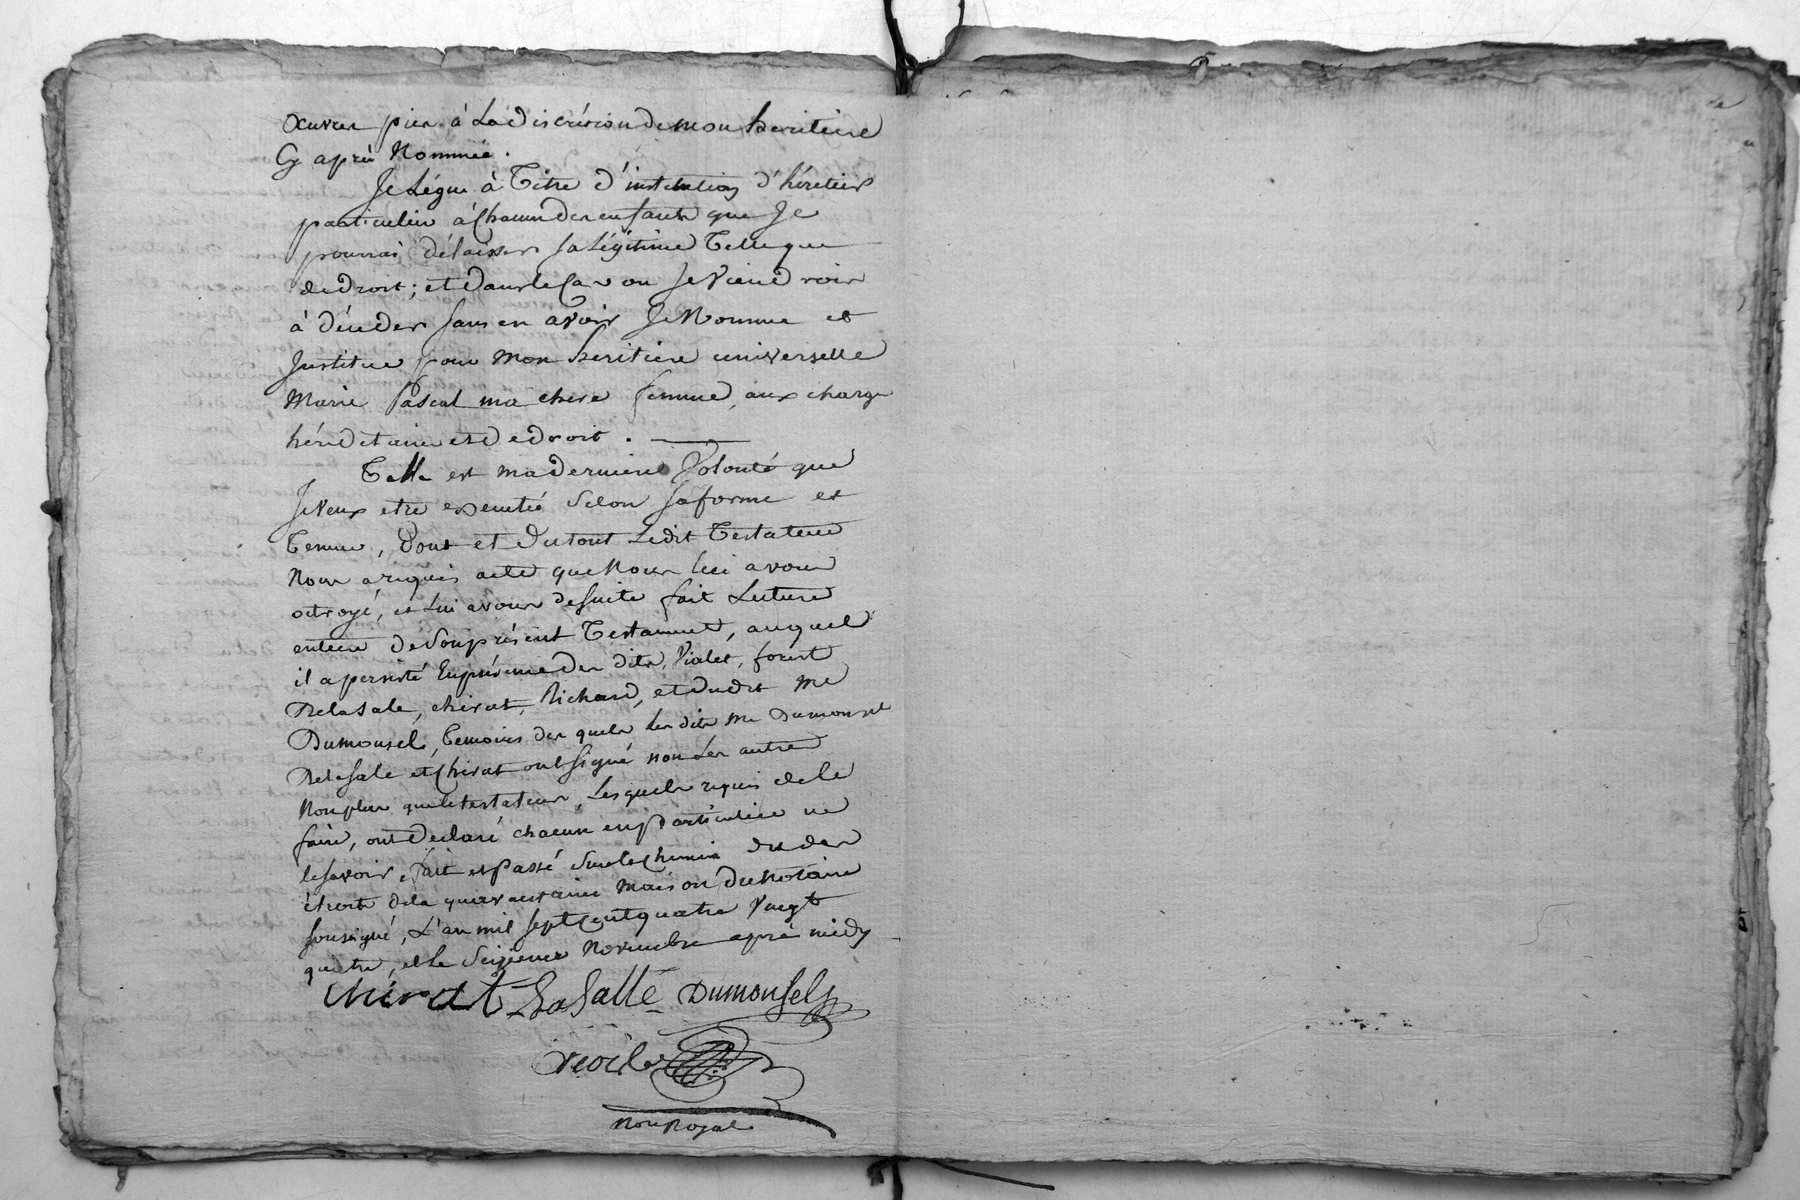 Œuvres pies à La discrétion de mon heritiere
Cy après Nommée.
Je Légue à Titre d'institution d'héretier
particulier à Chacun des enfants que Je
pourrai délaisser sa Légitime Telle que
de droit; et dans le Cas ou Je Viendrois
à décéder sans en avoir Je Nomme et
Justitue pour mon heritiere universelle
Marie Pascal ma chere femme, aux charges
héréditaires et de droit.
Telle est ma derniere Volonté que
Je Veux etre executée Selon sa forme et
Teneur, Dont et Du tout Ledit Testateur
Nous a requis acte que Nous lui avons
octroyé, et Lui avons de suite fait Lecture
entiere de Son présent Testament, auquel
il a persisté En présence des dits, Vialet, forest
De la Sale, chirat, Richard, et dudit Me
Dumousel, Temoins des quels Les dits Me Dumousel
De la Sale et Chirat ont Signé non Les autres
Non plus que le testateur, Lesquels requis de le
faire, ont Declaré chacun en particulier ne
le savoir, fait et passé Sur le Chemin des
étroits de la quarantaine Maison du Notaire
soussigné, L'an mil sept Cent quatre Vingt
quatre, et le Seizieme Novembre après midy
Chirat LaSalle Dumousel
Not Royal